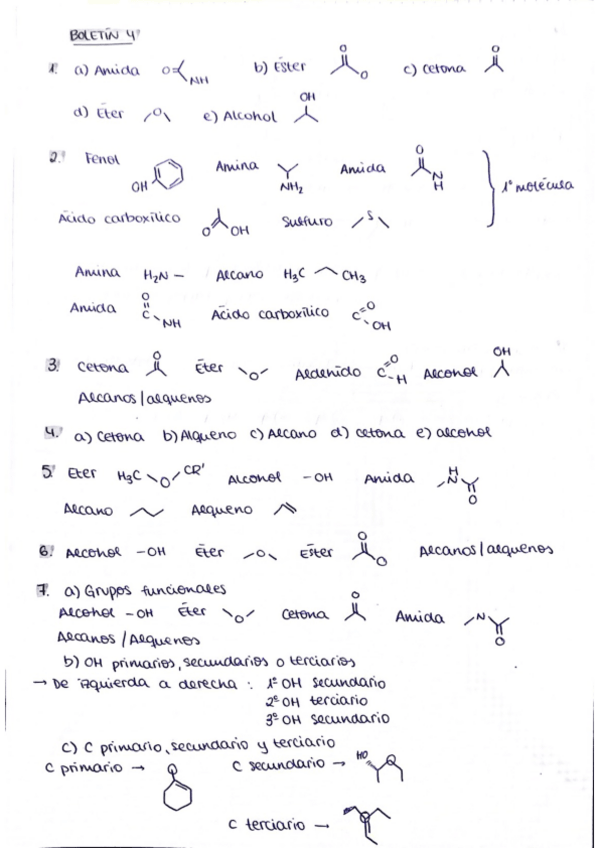 BOLETÍN 4
1. a) Amida O NH b) Éster O O c) Cetona O
d) Éter O e) Alcohol OH
2. Fenol OH Amina NH2 Amida O N H 1º molécula
Ácido carboxílico O OH Sulfuro S
Amina H2N – Alcano H3C CH3
Amida O C NH Ácido carboxílico C O OH
3. Cetona O Éter O Aldehído C O H Alcohol OH
Alcanos/alquenos
4. a) Cetona b) Alqueno c) Alcano d) cetona e) alcohol
5. Eter H3C O CR' Alcohol -OH Amida H N O
Alcano Alqueno
6. Alcohol -OH Éter O Éster O O Alcanos/alquenos
7. a) Grupos funcionales
Alcohol -OH Éter O Cetona O Amida N O
Alcanos/Alquenos
b) OH primarios, secundarios o terciarios
→ De izquierda a derecha: 1º OH secundario
2º OH terciario
3º OH secundario
c) C primario, secundario y terciario
C primario → C secundario → HO
C terciario →